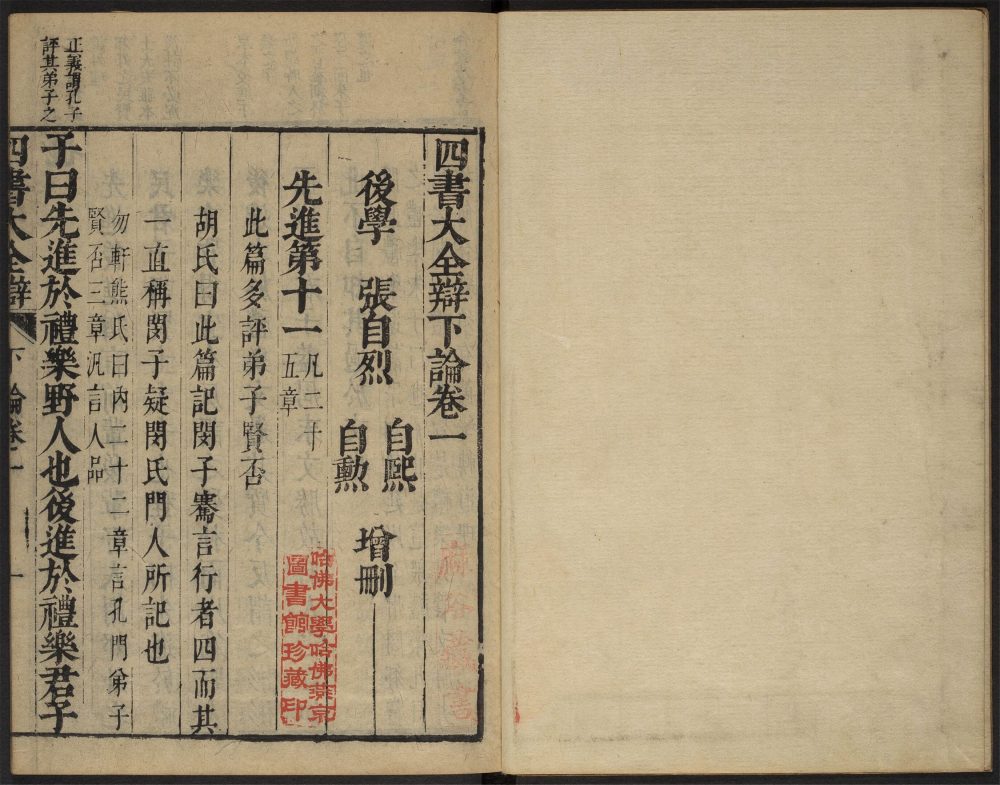 四書大全辯下論卷一
後學 張自烈 自熙 自勲 增刪
先進第十一 凡二十五章
此篇多評弟子賢否
胡氏曰此篇記閔子騫言行者四而其
一直稱閔子疑閔氏門人所記也
勿軒熊氏曰內二十二章言孔門弟子
賢否三章汎言人品
子曰先進於禮樂野人也後進於禮樂君子
正義謂孔子
評其弟子之
四書大全辯 下論卷一 一
哈佛大學哈佛燕京
圖書館珍藏印